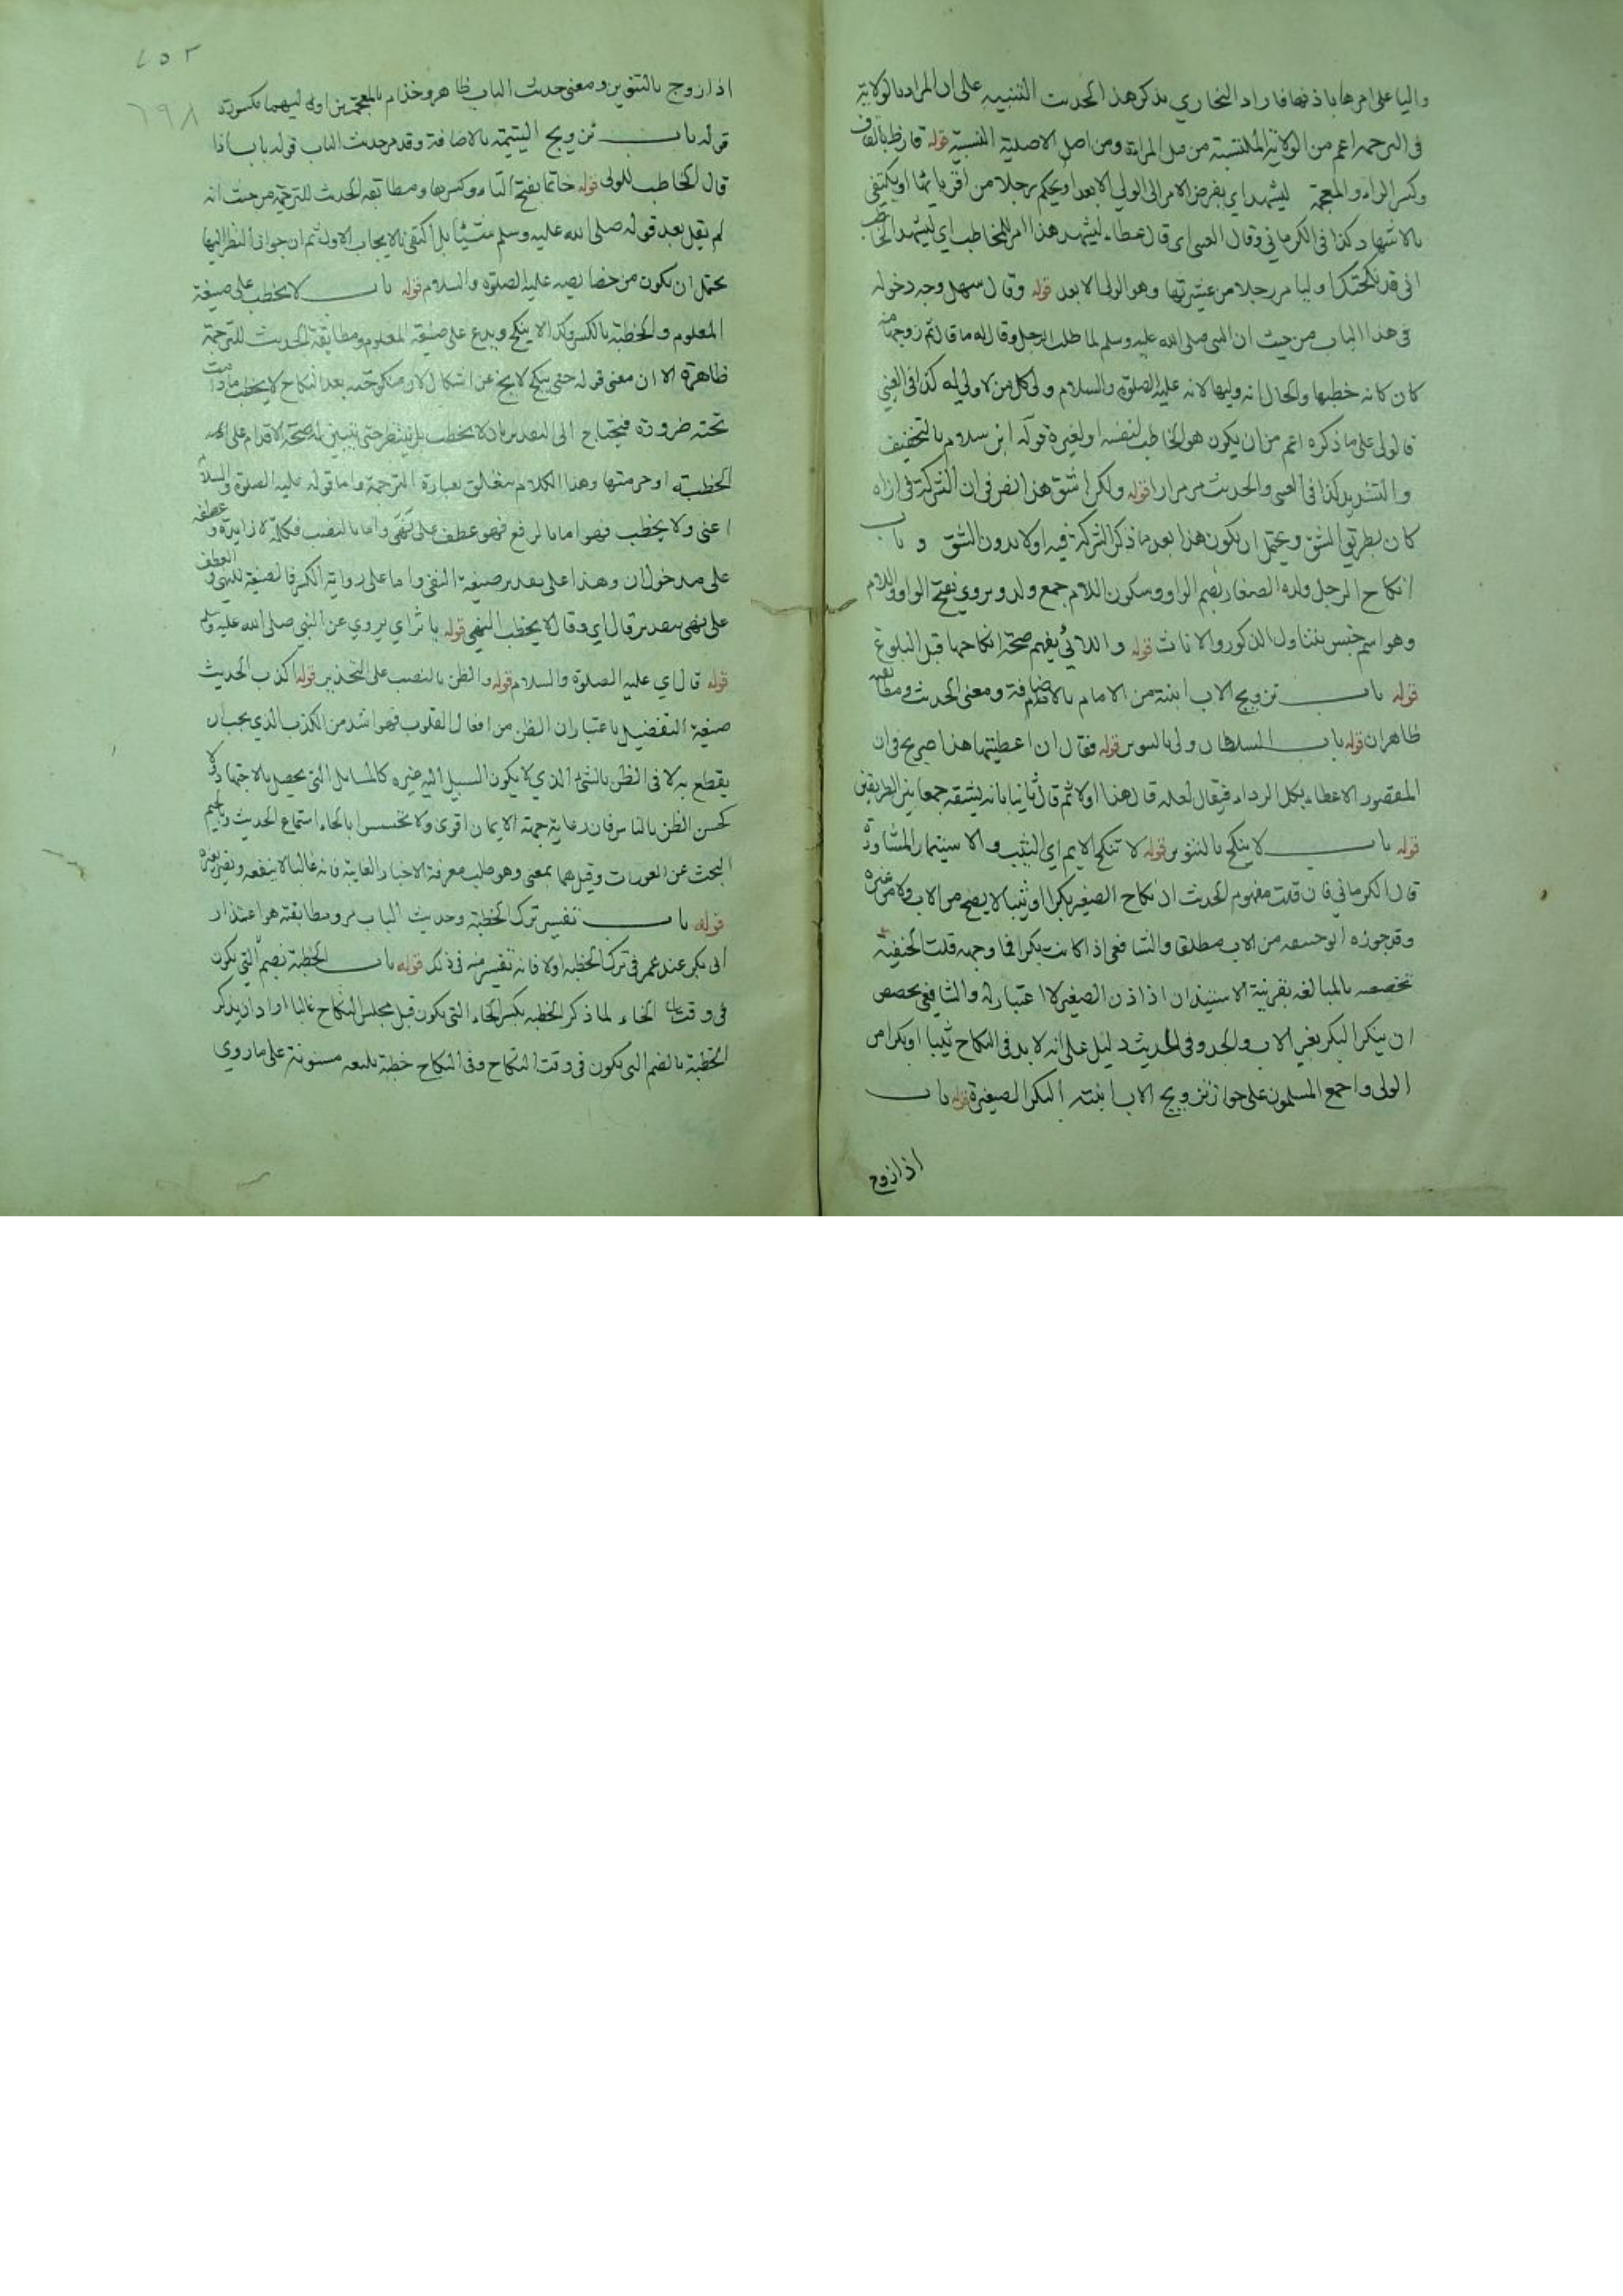 واليا على امرها باذنها فاراد البخاري بذكر هذا الحديث التنبيه على ان المراد بالولاية
في الترجمة اعم من الولاية المكتسبة من قبل المراة ومن اصل الاصلية النسبية قوله قارظ بالقاف
وكسر الراء والمعجمة ليشهد اي يفوض الامر الى الولي الابعد او يحكم رجلا من اقربائها او يكتفي
بالاشهاد كذا في الكرماني وقال العيني اي قال عطاء ليشهد هذا امر للمخاطب اي ليشهد الخاطب
اني قد نكحتك او ليامر رجلا من عشيرتها وهو الولي الابعد قوله وقال سهل وجه دخوله
في هذا الباب من حيث ان النبي صلى الله عليه وسلم لما طلب الرجل وقال له ما قال ثم زوجها منه
كان كانه خطبها والحال انه وليها لانه عليه الصلوة والسلام ولي كل من لا ولي له كذا في العيني
فالولي على ما ذكره اعم من ان يكون هو الخاطب لنفسه او لغيره قوله ابن سلام بالتخفيف
والتشديد كذا في العيني والحديث مر مرارا قوله ولكن اشق هذا نص في ان الشركة في ازاره
كان بطريق الشق ويحتمل ان يكون هذا بعد ما ذكر الشركة فيه اولا بدون الشق و باب
انكاح الرجل ولده الصغار بضم الواو وسكون اللام جمع ولد ويروي بفتح الواو واللام
وهو اسم جنس يتناول الذكور والاناث قوله واللائي يفهم صحة انكاحها قبل البلوغ
قوله باب تزويج الاب ابنته من الامام بالاضافة ومعنى الحديث ومطابقته
ظاهران قوله باب السلطان ولي بالتنوين قوله فقال ان اعطيتها هذا صريح في ان
المقصود الاعطاء بكل الرداء فيقال لعله قال هذا اولا ثم قال ثانيا بانه يشقه جمعا بين الطريقين
قوله باب لا ينكح بالتنوين قوله لا تنكح الايم اي الثيب والاستيمار المشاورة
قال الكرماني فان قلت مفهوم الحديث ان نكاح الصغير بكرا او ثيبا لا يصح من الاب ولا من غيره
وقد جوزه ابو حنيفة من الاب مطلقا والشافعي اذا كانت بكرا فما وجهه قلت الحنفية
تخصصه بالمبالغة بقرينة الاستيذان اذ اذن الصغير لا اعتبار له والشافعي يخصص
ان ينكر البكر بغير الاب والجد وفي الحديث دليل على انه لا بد في النكاح ثيبا او بكرا من
الولي واجمع المسلمون على جواز تزويج الاب ابنته البكر الصغيرة قوله باب
اذا زوج
٧٥٢
٦٩٨
اذا زوج بالتنوين ومعنى حديث الباب ظاهر وخذام بالمعجمتين اوله ليهما مكسورة
قوله باب تزويج اليتيمة بالاضافة وقد مر حديث الباب قوله باب اذا
قال الخاطب للولي قوله خاتما بفتح التاء وكسرها ومطابقة الحديث للترجمة من حيث انه
لم يقل بعد قوله صلى الله عليه وسلم شيئا بل اكتفى بالايجاب الاول ثم ان جواز النظر اليها
يحتمل ان يكون من خصايصه عليه الصلوة والسلام قوله باب لا يخطب على صيغة
المعلوم والخطبة بالكسر وكذا لا ينكح ويدع على صيغة المعلوم ومطابقة الحديث للترجمة
ظاهرة الا ان معنى قوله حتى ينكح لا يخ عن اشكال لان منكوحته بعد النكاح لا يخطب ما دامت
تحته ضرورة فيحتاج الى التقدير بان لا يخطب بل ينتظر حتى يتبين له صحة الاقدام على
الخطبة او حرمتها وهذا الكلام يتعلق بعبارة الترجمة واما قوله عليه الصلوة والسلام
اعني ولا يخطب فهو اما بالرفع فهو عطف على نهى واما بالنصب فكلمة لا زايدة وعطفه
على مدخول ان وهذا على تقدير صيغة النفي واما على رواية الكسر فالصيغة للنهي والعطف
على نهى بتقدير قال اي وقال لا يخطب النهي قوله ياثر اي يروي عن النبي صلى الله عليه وسلم
قوله قال اي عليه الصلوة والسلام قوله والظن بالنصب على التحذير قوله اكذب الحديث
صيغة التفضيل باعتبار ان الظن من افعال القلوب فهو اشد من الكذب الذي يجب ان
يقطع به لا في الظن بالشئ الذي لا يكون السبيل اليه غيره كالمسايل التي يحصل بالاجتهاد ولا
كحسن الظن بالناس فان رعاية جهة الايمان اقوى ولا تحسسوا بالحاء استماع الحديث وبالجيم
البحث عن العورات وقيل هما بمعنى وهو طلب معرفة الاخبار الغايبة فانه غالبا لا ينفعه ويضر بغيره
قوله باب تفسير ترك الخطبة وحديث الباب مر ومطابقته هو اعتذار
ابي بكر عند عمر في ترك الخطبة اولا فانه تفسير منه في ذلك قوله باب الخطبة بضم التي يكون
في وقت الخاء لما ذكر الخطبة بكسر الخاء التي يكون قبل مجلس النكاح غالبا اراد ان يذكر
الخطبة بالضم التي يكون في وقت النكاح وفي النكاح خطبة بليغة مسنونة على ما روي